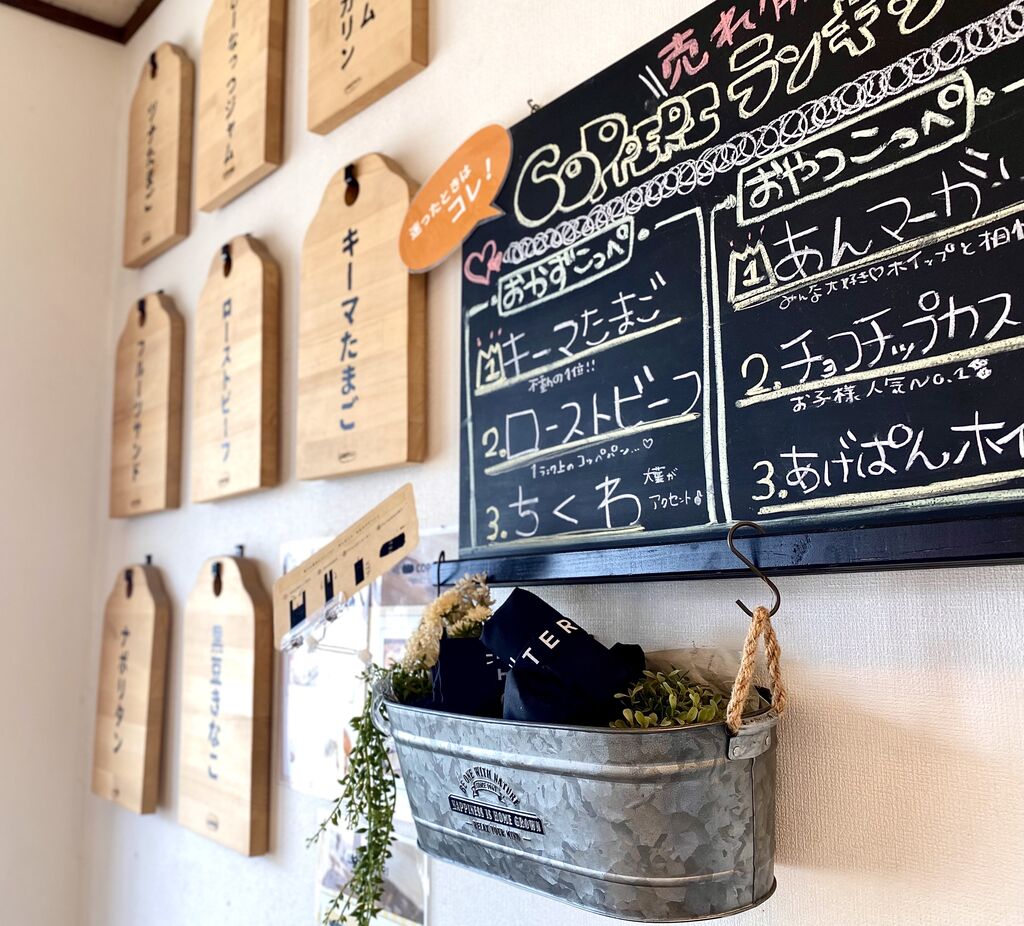 ツナたまご
なっつジャム
ガリン
ム
フルーツサンド
ローストビーフ
キーマたまご
ナポリタン
黒豆きなこ
迷ったときは
コレ！
売れ
COPPERS ランキング
おかずこっぺ
1 キーマたまご
不動の1位!!
2. ローストビーフ
1ランク上のコッペパン…♡
3. ちくわ
大葉が
アクセント
おやつこっぺ
1 あんマーガ
みんな大好き♡ホイップと相性
2. チョコチップカス
お子様人気No.1
3. あげぱんホイ
BE ONE WITH NATURE
HAPPINESS IS HOME GROWN
RELAX YOUR MIND